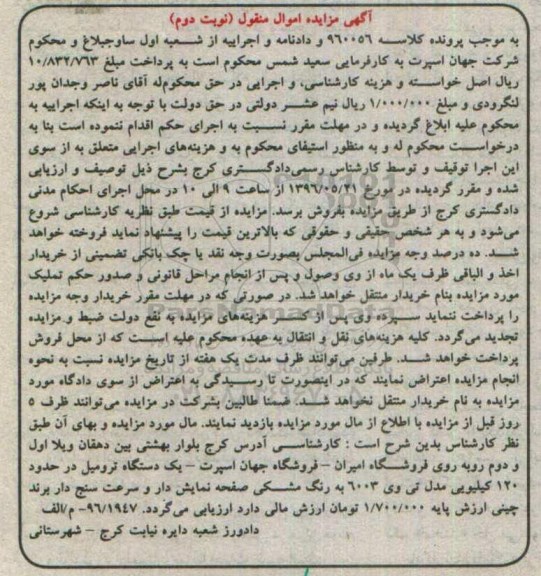 آگهی مزایده اموال منقول (نوبت دوم)
به موجب پرونده کلاسه ۹۶۰۰۵۶ و دادنامه و اجراییه از شعبه اول ساوجبلاغ و محکوم
شرکت جهان اسپرت به کارفرمایی سعید شمس محکوم است به پرداخت مبلغ ۱۰/۸۳۲/۷۶۳
ریال اصل خواسته و هزینه کارشناسی، و اجرایی در حق محکوم‌له آقای ناصر وجدان پور
لنگرودی و مبلغ ۱/۰۰۰/۰۰۰ ریال نیم عشر دولتی در حق دولت با توجه به اینکه اجراییه به
محکوم علیه ابلاغ گردیده و در مهلت مقرر نسبت به اجرای حکم اقدام ننموده است بنا به
درخواست محکوم له و به منظور استیفای محکوم به و هزینه‌های اجرایی متعلق به از سوی
این اجرا توقیف و توسط کارشناس رسمی دادگستری کرج بشرح ذیل توصیف و ارزیابی
شده و مقرر گردیده در مورخ ۱۳۹۶/۰۵/۲۱ از ساعت ۹ الی ۱۰ در محل اجرای احکام مدنی
دادگستری کرج از طریق مزایده بفروش برسد. مزایده از قیمت طبق نظریه کارشناسی شروع
می‌شود و به هر شخص حقیقی و حقوقی که بالاترین قیمت را پیشنهاد نماید فروخته خواهد
شد. ده درصد وجه مزایده فی‌المجلس بصورت وجه نقد یا چک بانکی تضمینی از خریدار
اخذ و الباقی ظرف یک ماه از وی وصول و پس از انجام مراحل قانونی و صدور حکم تملیک
مورد مزایده بنام خریدار منتقل خواهد شد. در صورتی که در مهلت مقرر خریدار وجه مزایده
را پرداخت ننماید سپرده وی پس از کسر هزینه‌های مزایده به نفع دولت ضبط و مزایده
تجدید می‌گردد. کلیه هزینه‌های نقل و انتقال به عهده محکوم علیه است که از محل فروش
پرداخت خواهد شد. طرفین می‌توانند ظرف مدت یک هفته از تاریخ مزایده نسبت به نحوه
انجام مزایده اعتراض نمایند که در اینصورت تا رسیدگی به اعتراض از سوی دادگاه مورد
مزایده به نام خریدار منتقل نخواهد شد. ضمنا طالبین بشرکت در مزایده می‌توانند ظرف ۵
روز قبل از مزایده با اطلاع از مال مورد مزایده بازدید نمایند. مال مورد مزایده و بهای آن طبق
نظر کارشناس بدین شرح است : کارشناسی آدرس کرج بلوار بهشتی بین دهقان ویلا اول
و دوم روبه روی فروشگاه امیران – فروشگاه جهان اسپرت – یک دستگاه تردمیل در حدود
۱۲۰ کیلیویی مدل تی وی ۶۰۰۳ به رنگ مشکی صفحه نمایش دار و سرعت سنج دار برند
چینی ارزش پایه ۱/۷۰۰/۰۰۰ تومان ارزش مالی دارد ارزیابی می‌گردد. ۹۶/۱۹۴۷- م/الف
دادورز شعبه دایره نیابت کرج – شهرستانی